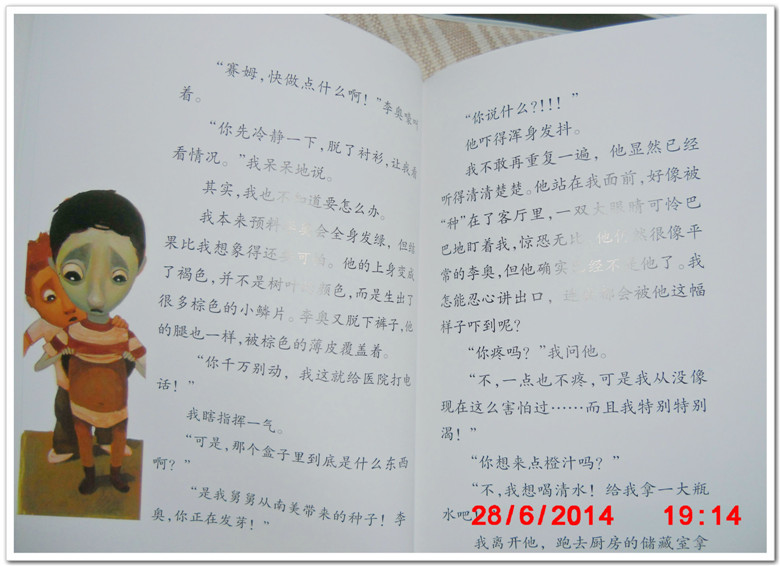 “赛姆，快做点什么啊！”李奥嚎叫
着。
“你先冷静一下，脱了衬衫，让我看
看情况。”我呆呆地说。
其实，我也不知道要怎么办。
我本来预料 会全身发绿，但结
果比我想象得还要可怕。他的上身变成
了褐色，并不是树叶的颜色，而是生出了
很多棕色的小鳞片。李奥又脱下裤子，他
的腿也一样，被棕色的薄皮覆盖着。
“你千万别动，我这就给医院打电
话！”
我瞎指挥一气。
“可是，那个盒子里到底是什么东西
啊？”
“是我舅舅从南美带来的种子！李
奥，你正在发芽！”
“你说什么？！！！”
他吓得浑身发抖。
我不敢再重复一遍，他显然已经
听得清清楚楚。他站在我面前，好像被
“种”在了客厅里，一双大眼睛可怜巴
巴地盯着我，惊恐无比。他仍然很像平
常的李奥，但他确实已经不是他了。我
怎能忍心讲出口， 会被他这幅
样子吓到呢？
“你疼吗？”我问他。
“不，一点也不疼，可是我从没像
现在这么害怕过……而且我特别特别
渴！”
“你想来点橙汁吗？”
“不，我想喝清水！给我拿一大瓶
水吧
28/6/2014 19:14
我离开他，跑去厨房的储藏室拿